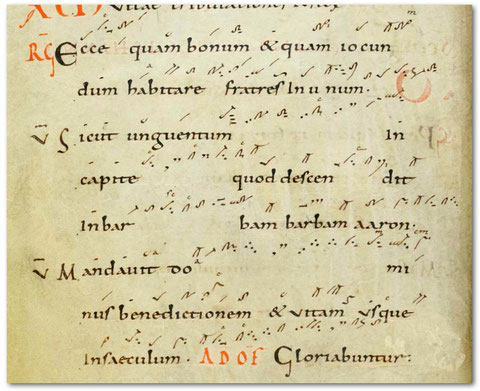 RG Ecce quam bonum & quam iocun
dum habitare fratres In unum.
V Sicut unguentum In
capite quod descen dit
In bar bam barbam aaron.
V Mandauit do mi
nus benedictionem & uitam usque
In saeculum. AD OF Gloriabuntur: